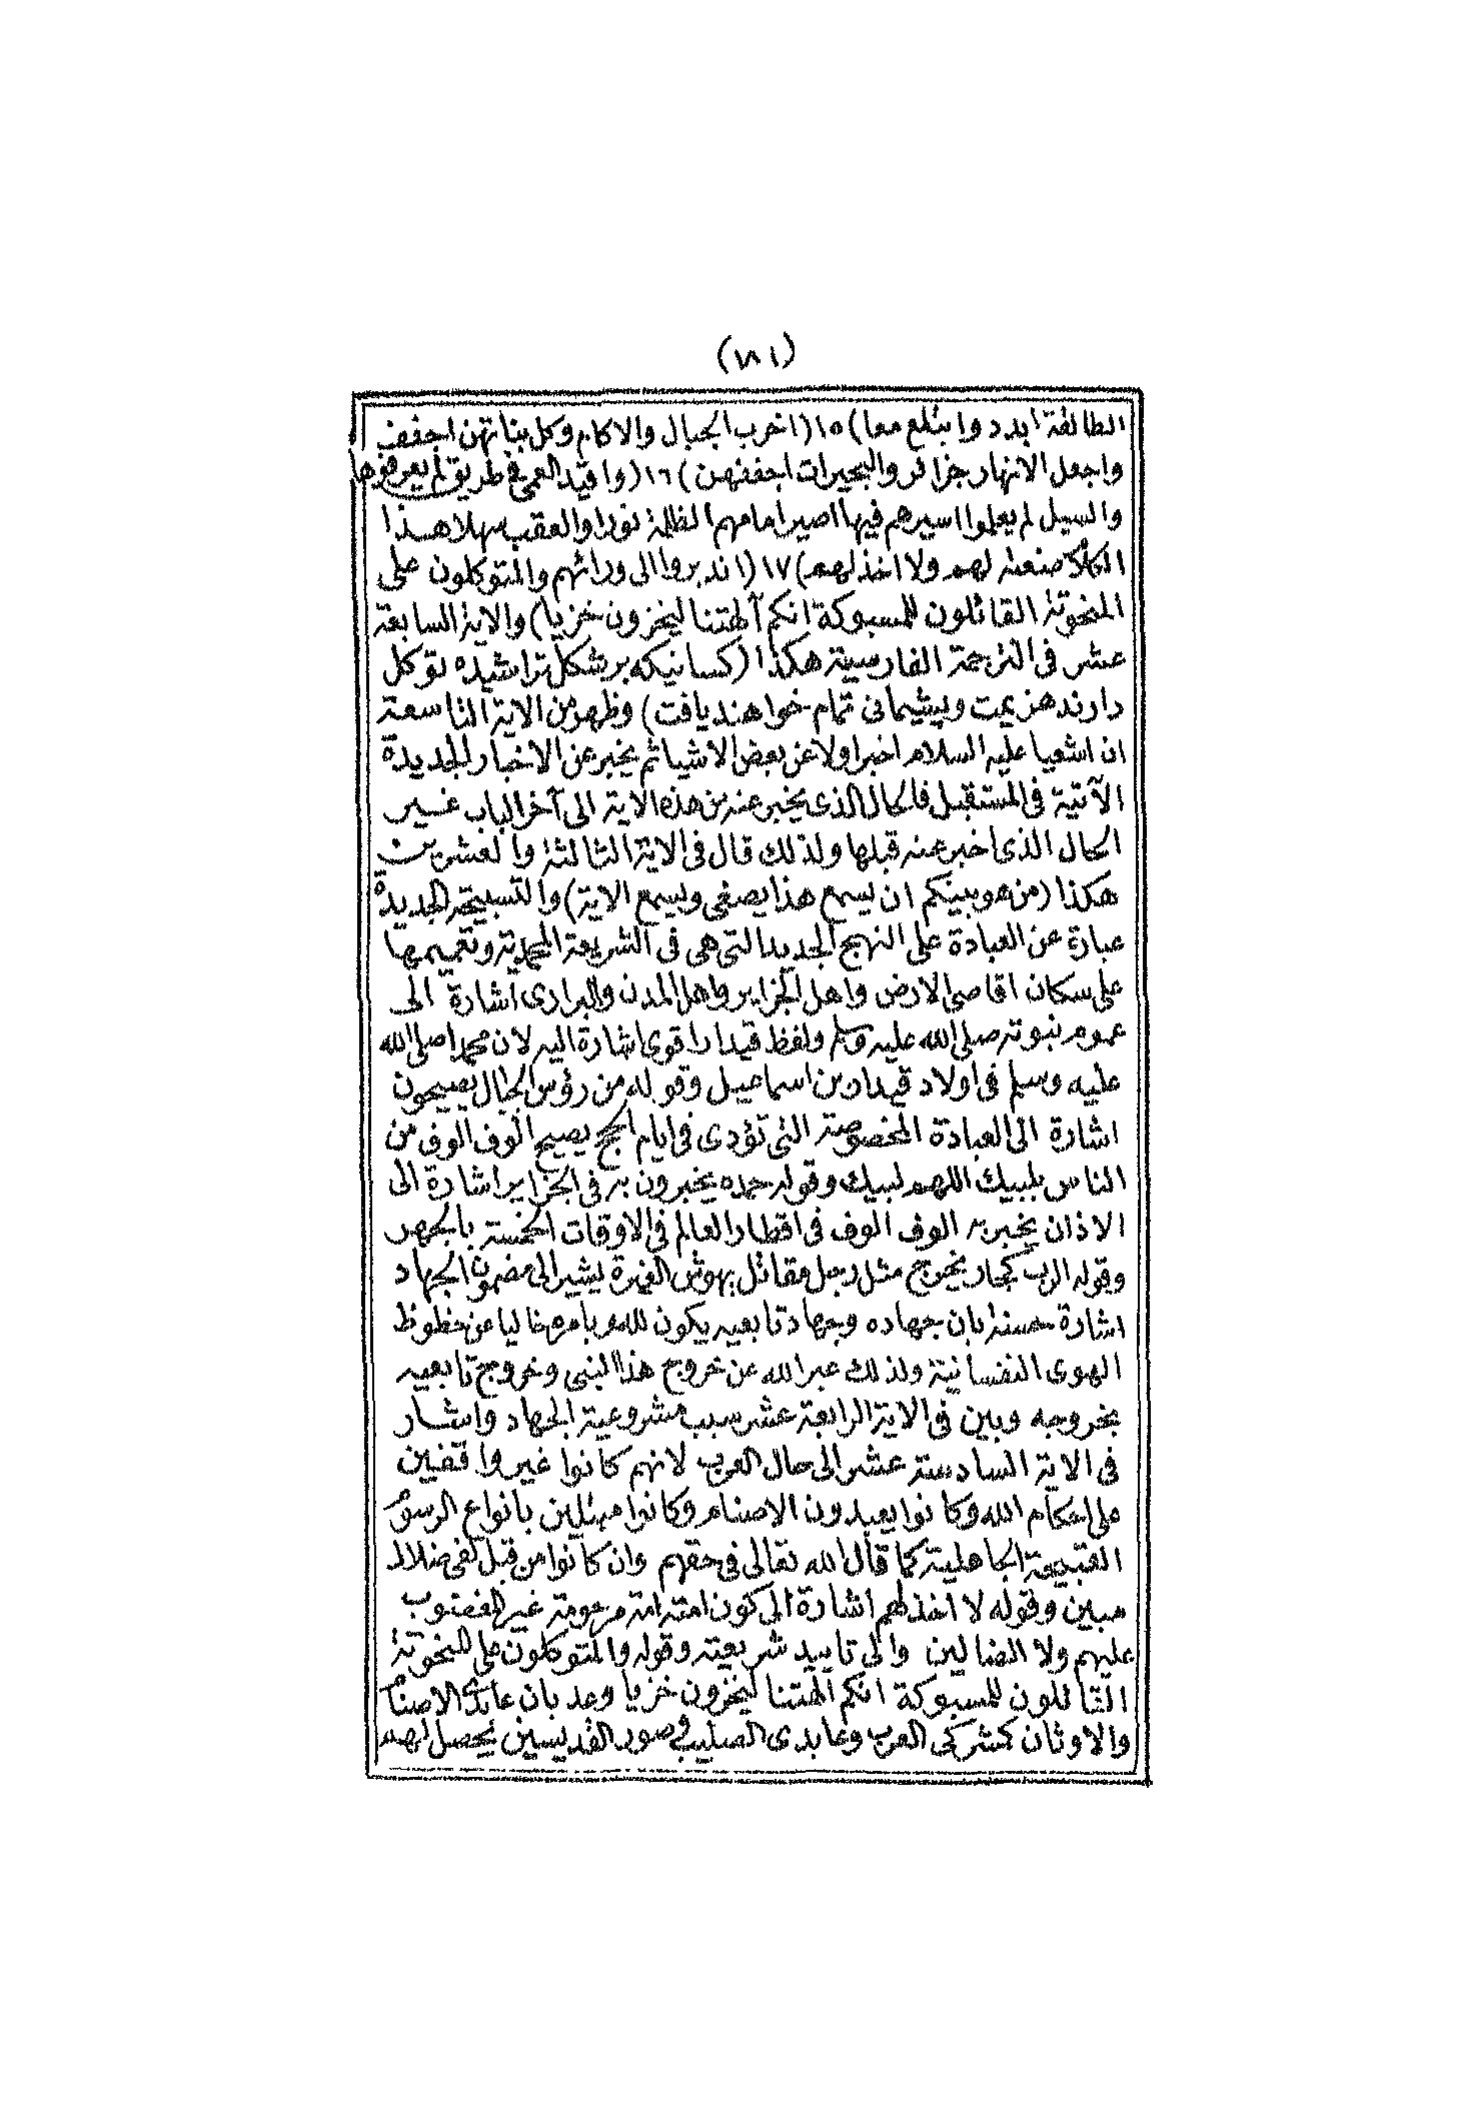 (١٨١)
الطالقة ابدد وابتلع معا) ١٥ (اخرب الجبال والاكام وكل بناتهن اجفف
واجعل الانهار جزائر والبحيرات اجففهن) ١٦ (واقيد العمى فى طريق لم يعرفوها
والسبل لم يعلموا اسيرهم فيها اصير امامهم الظلمة نورا والعقب سهلا هذا
الكلام صنعته لهم ولا اخذلهم) ١٧ (اندبروا الى ورائهم والمتوكلون على
المنحوتة القائلون للمسبوكة انكم آلهتنا ليخزون خزيا) والاية السابعة
عشر فى الترجمة الفارسية هكذا (كسانيكه بر شكل تراشيده توكل
دارند هزيمت وپشيمانى تمام خواهند يافت) وظهر من الاية التاسعة
ان اشعيا عليه السلام اخبر اولا عن بعض الاشيا ثم يخبر عن الاخبار الجديدة
الآتية فى المستقبل فالحال الذى يخبر عنه من هذه الاية الى آخر الباب غير
الحال الذى اخبر عنه قبلها ولذلك قال فى الاية الثالثة والعشرين
هكذا (من هو بينكم ان يسمع هذا يصغى ويسمع الاية) والتسبيحة الجديدة
عبارة عن العبادة على النهج الجديد التى هى فى الشريعة المحمدية وتعميمها
على سكان اقاصى الارض واهل الجزاير واهل المدن والبرارى اشارة الى
عموم نبوته صلى الله عليه وسلم ولفظ قيدار اقوى اشارة اليه لان محمدا صلى الله
عليه وسلم فى اولاد قيدار بن اسماعيل وقوله من رؤس الجبال يصيحون
اشارة الى العبادة المخصوصة التى تؤدى فى ايام الحج يصيح الوف الوف من
الناس بلبيك اللهم لبيك وقوله حمده يخبرون به فى الجزاير اشارة الى
الاذان يخبر به الوف الوف فى اقطار العالم فى الاوقات الخمسة بالجهر
وقوله الرب كجبار يخرج مثل رجل مقاتل يهوش الغيرة يشير الى مضمون الجهاد
اشارة حسنة بان جهاده وجهاد تابعيه يكون لله وبامره خاليا عن حظوظ
الهوى النفسانية ولذلك عبر الله عن خروج هذا النبى وخروج تابعيه
بخروجه وبين فى الاية الرابعة عشر سبب مشروعية الجهاد واشار
فى الاية السادسة عشر الى حال العرب لانهم كانوا غير واقفين
على احكام الله وكانوا يعبدون الاصنام وكانوا مبتلين بانواع الرسوم
القبيحة الجاهلية كما قال الله تعالى فى حقهم وان كانوا من قبل لفى ضلال
مبين وقوله لا اخذلهم اشارة الى كون امته امة مرحومة غير المغضوب
عليهم ولا الضالين والى تاييد شريعته وقوله والمتوكلون على المنحوتة
القائلون للمسبوكة انكم الهتنا ليخزون خزيا وعد بان عابدى الاصنام
والاوثان كمشركى العرب وعابدى الصليب وصور القديسين يحصل لهم